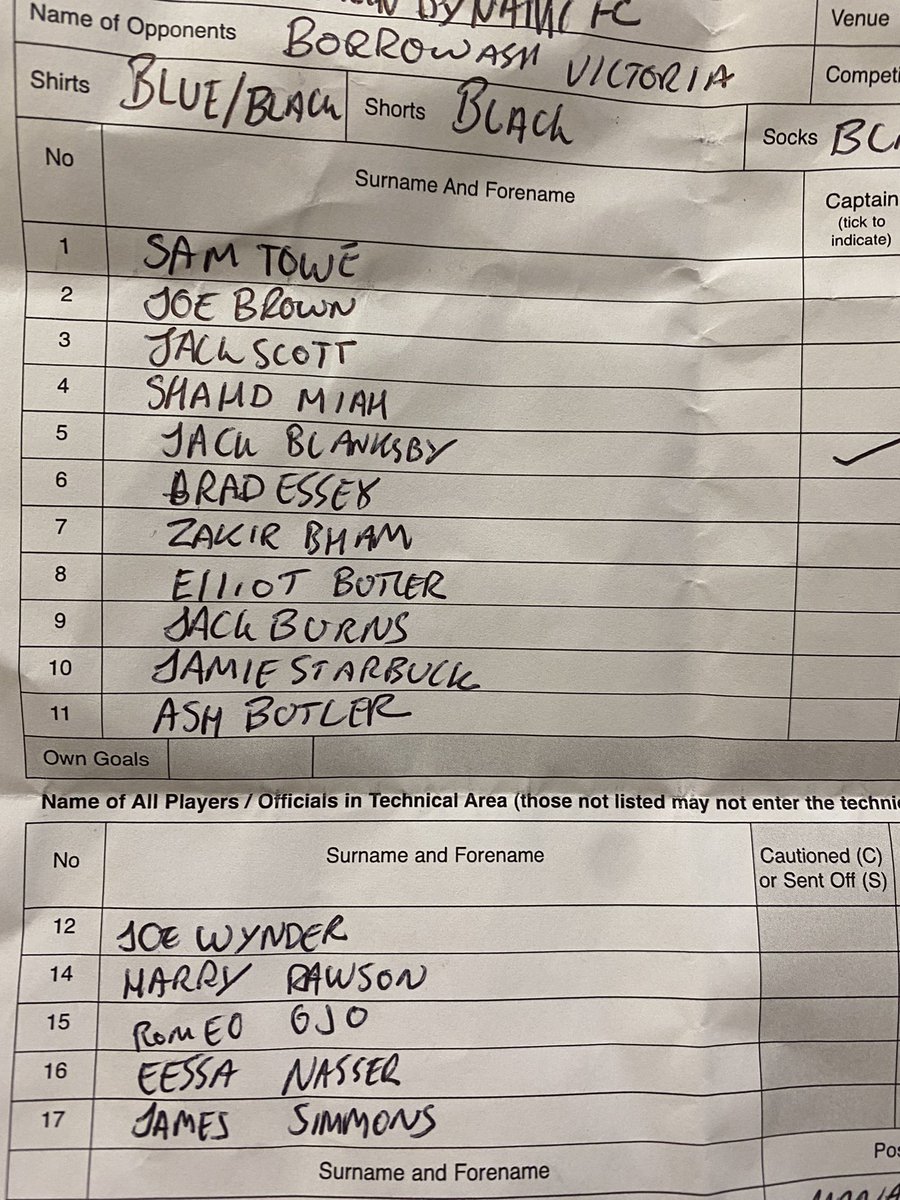 DYNAMIC FC
Name of Opponents BORROWASH VICTORIA Venue
Shirts BLUE/BLACK Shorts BLACK Socks
No Surname And Forename Captain
(tick to
indicate)
1 SAM TOWE
2 JOE BROWN
3 JACK SCOTT
4 SHAHD MIAH
5 JACK BLANKSBY ✓
6 BRAD ESSEX
7 ZAKIR BHAM
8 ElliOT BUTLER
9 JACK BURNS
10 JAMIE STARBUCK
11 ASH BUTLER
Own Goals
Name of All Players / Officials in Technical Area (those not listed may not enter the
No Surname and Forename Cautioned (C)
or Sent Off (S)
12 JOE WYNDER
14 HARRY RAWSON
15 ROMEO OJO
16 EESSA NASSER
17 JAMES SIMMONS
Surname and Forename